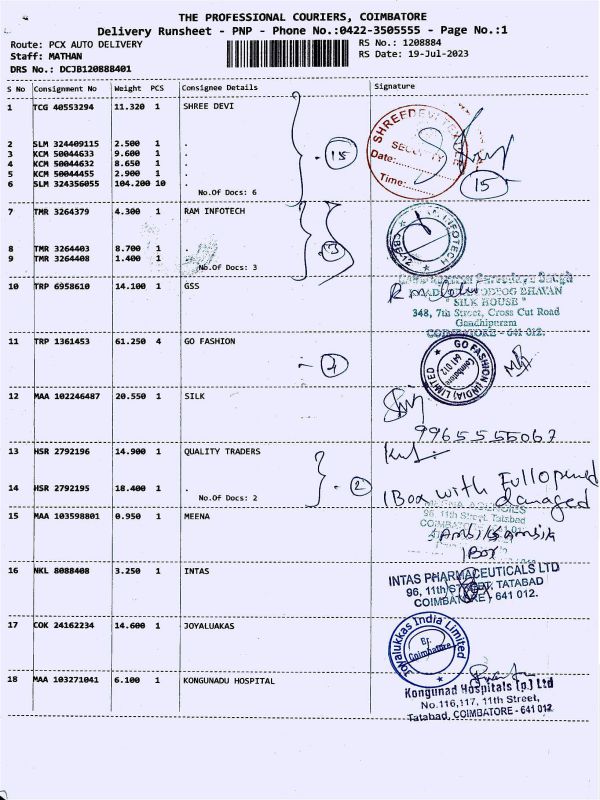 THE PROFESSIONAL COURIERS, COIMBATORE
Delivery Runsheet - PNP - Phone No.:0422-3505555 - Page No.:1
Route: PCX AUTO DELIVERY RS No.: 1208884
Staff: MATHAN RS Date: 19-Jul-2023
DRS No.: DCJB120888401
S No Consignment No Weight PCS Consignee Details Signature
1 TCG 40553294 11.320 1 SHREE DEVI
2 SLM 324409115 2.500 1 .
3 KCM 50044633 9.600 1 .
4 KCM 50044632 8.650 1 .
5 KCM 50044455 2.900 1 .
6 SLM 324356055 104.200 10 .
No.Of Docs: 6
15
SHREEDEVI TEXTILE
SECURITY
Date:
Time:
15
7 TMR 3264379 4.300 1 RAM INFOTECH
8 TMR 3264403 8.700 1 .
9 TMR 3264408 1.400 1 .
No.Of Docs: 3
3
INFOTECH
CBE-12
10 TRP 6958610 14.100 1 GSS
BHAVAN
" SILK HOUSE "
348, 7th Street, Cross Cut Road
Gandhipuram
COIMBATORE - 641 012.
11 TRP 1361453 61.250 4 GO FASHION
4
GO FASHION (INDIA) LIMITED
Coimbatore
641 012
12 MAA 102246487 20.550 1 SILK
9965555067
13 HSR 2792196 14.900 1 QUALITY TRADERS
14 HSR 2792195 18.400 1 .
No.Of Docs: 2
2
1 Box with Full opened
damaged
15 MAA 103598801 0.950 1 MEENA
MEENA AGENCIES
96, 11th Street, Tatabad
1 Box
16 NKL 8088408 3.250 1 INTAS
INTAS PHARMACEUTICALS LTD
96, 11th STREET, TATABAD
COIMBATORE - 641 012.
17 COK 24162234 14.600 1 JOYALUAKAS
Joyalukkas India Limited
Br.
Coimbatore
18 MAA 103271041 6.100 1 KONGUNADU HOSPITAL
Kongunad Hospitals (p.) Ltd
No.116,117, 11th Street,
Tatabad, COIMBATORE - 641 012